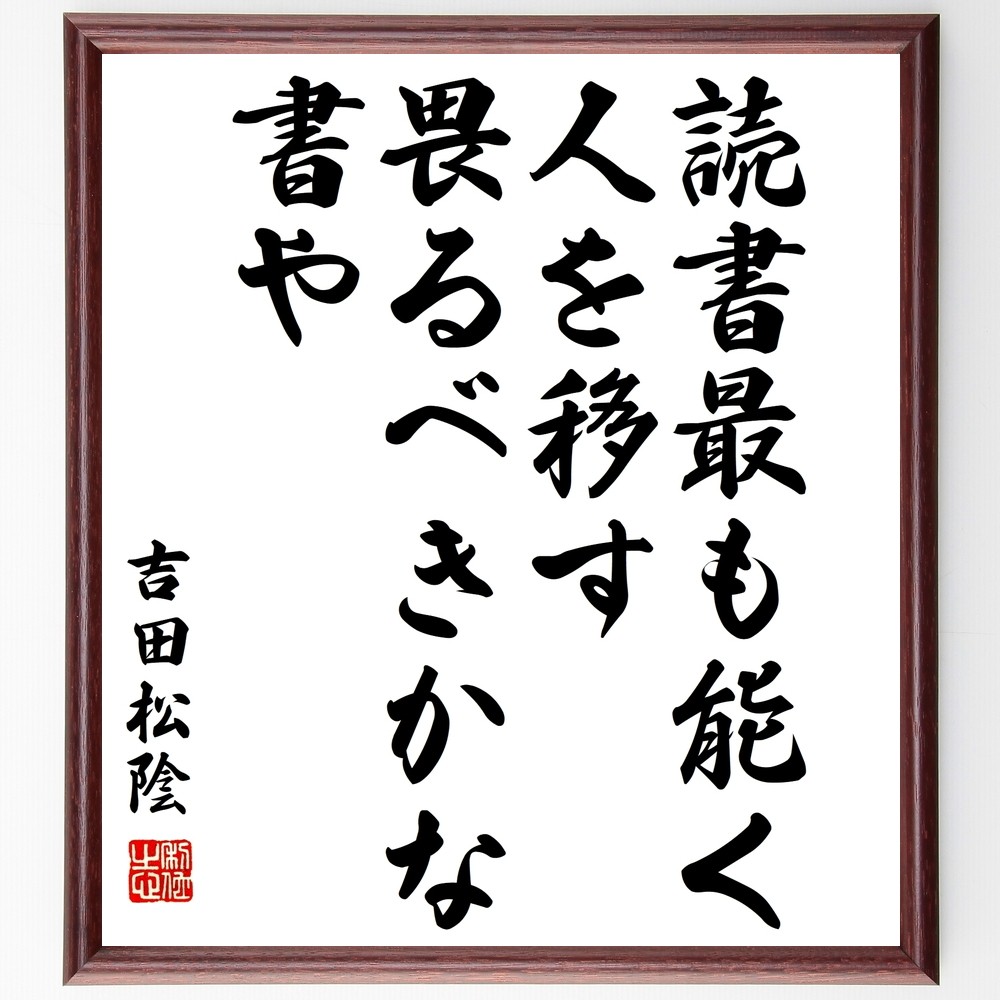 読書最も能く
人を移す
畏るべきかな
書や
吉田松陰